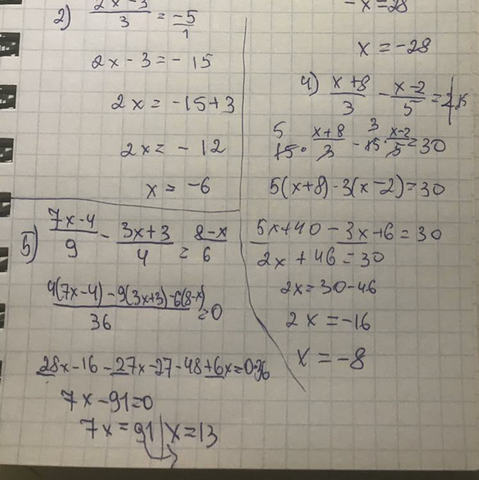 2) (2x-3)/3 = -5/1
2x - 3 = - 15
2x = -15+3
2x = - 12
x = -6
-x = 28
x = -28
4) (x+8)/3 - (x-2)/5 = 2 |·15
15 5 · (x+8)/3 - 15 3 · (x-2)/5 = 30
5(x+8)-3(x-2)=30
5x+40 - 3x+6 = 30
2x + 46 = 30
2x = 30-46
2x = -16
x = -8
5) (7x-4)/9 - (3x+3)/4 = (8-x)/6
(4(7x-4)-9(3x+3)-6(8-x))/36 = 0
28x-16-27x-27-48+6x=0·36
7x-91=0
7x=91 | x=13